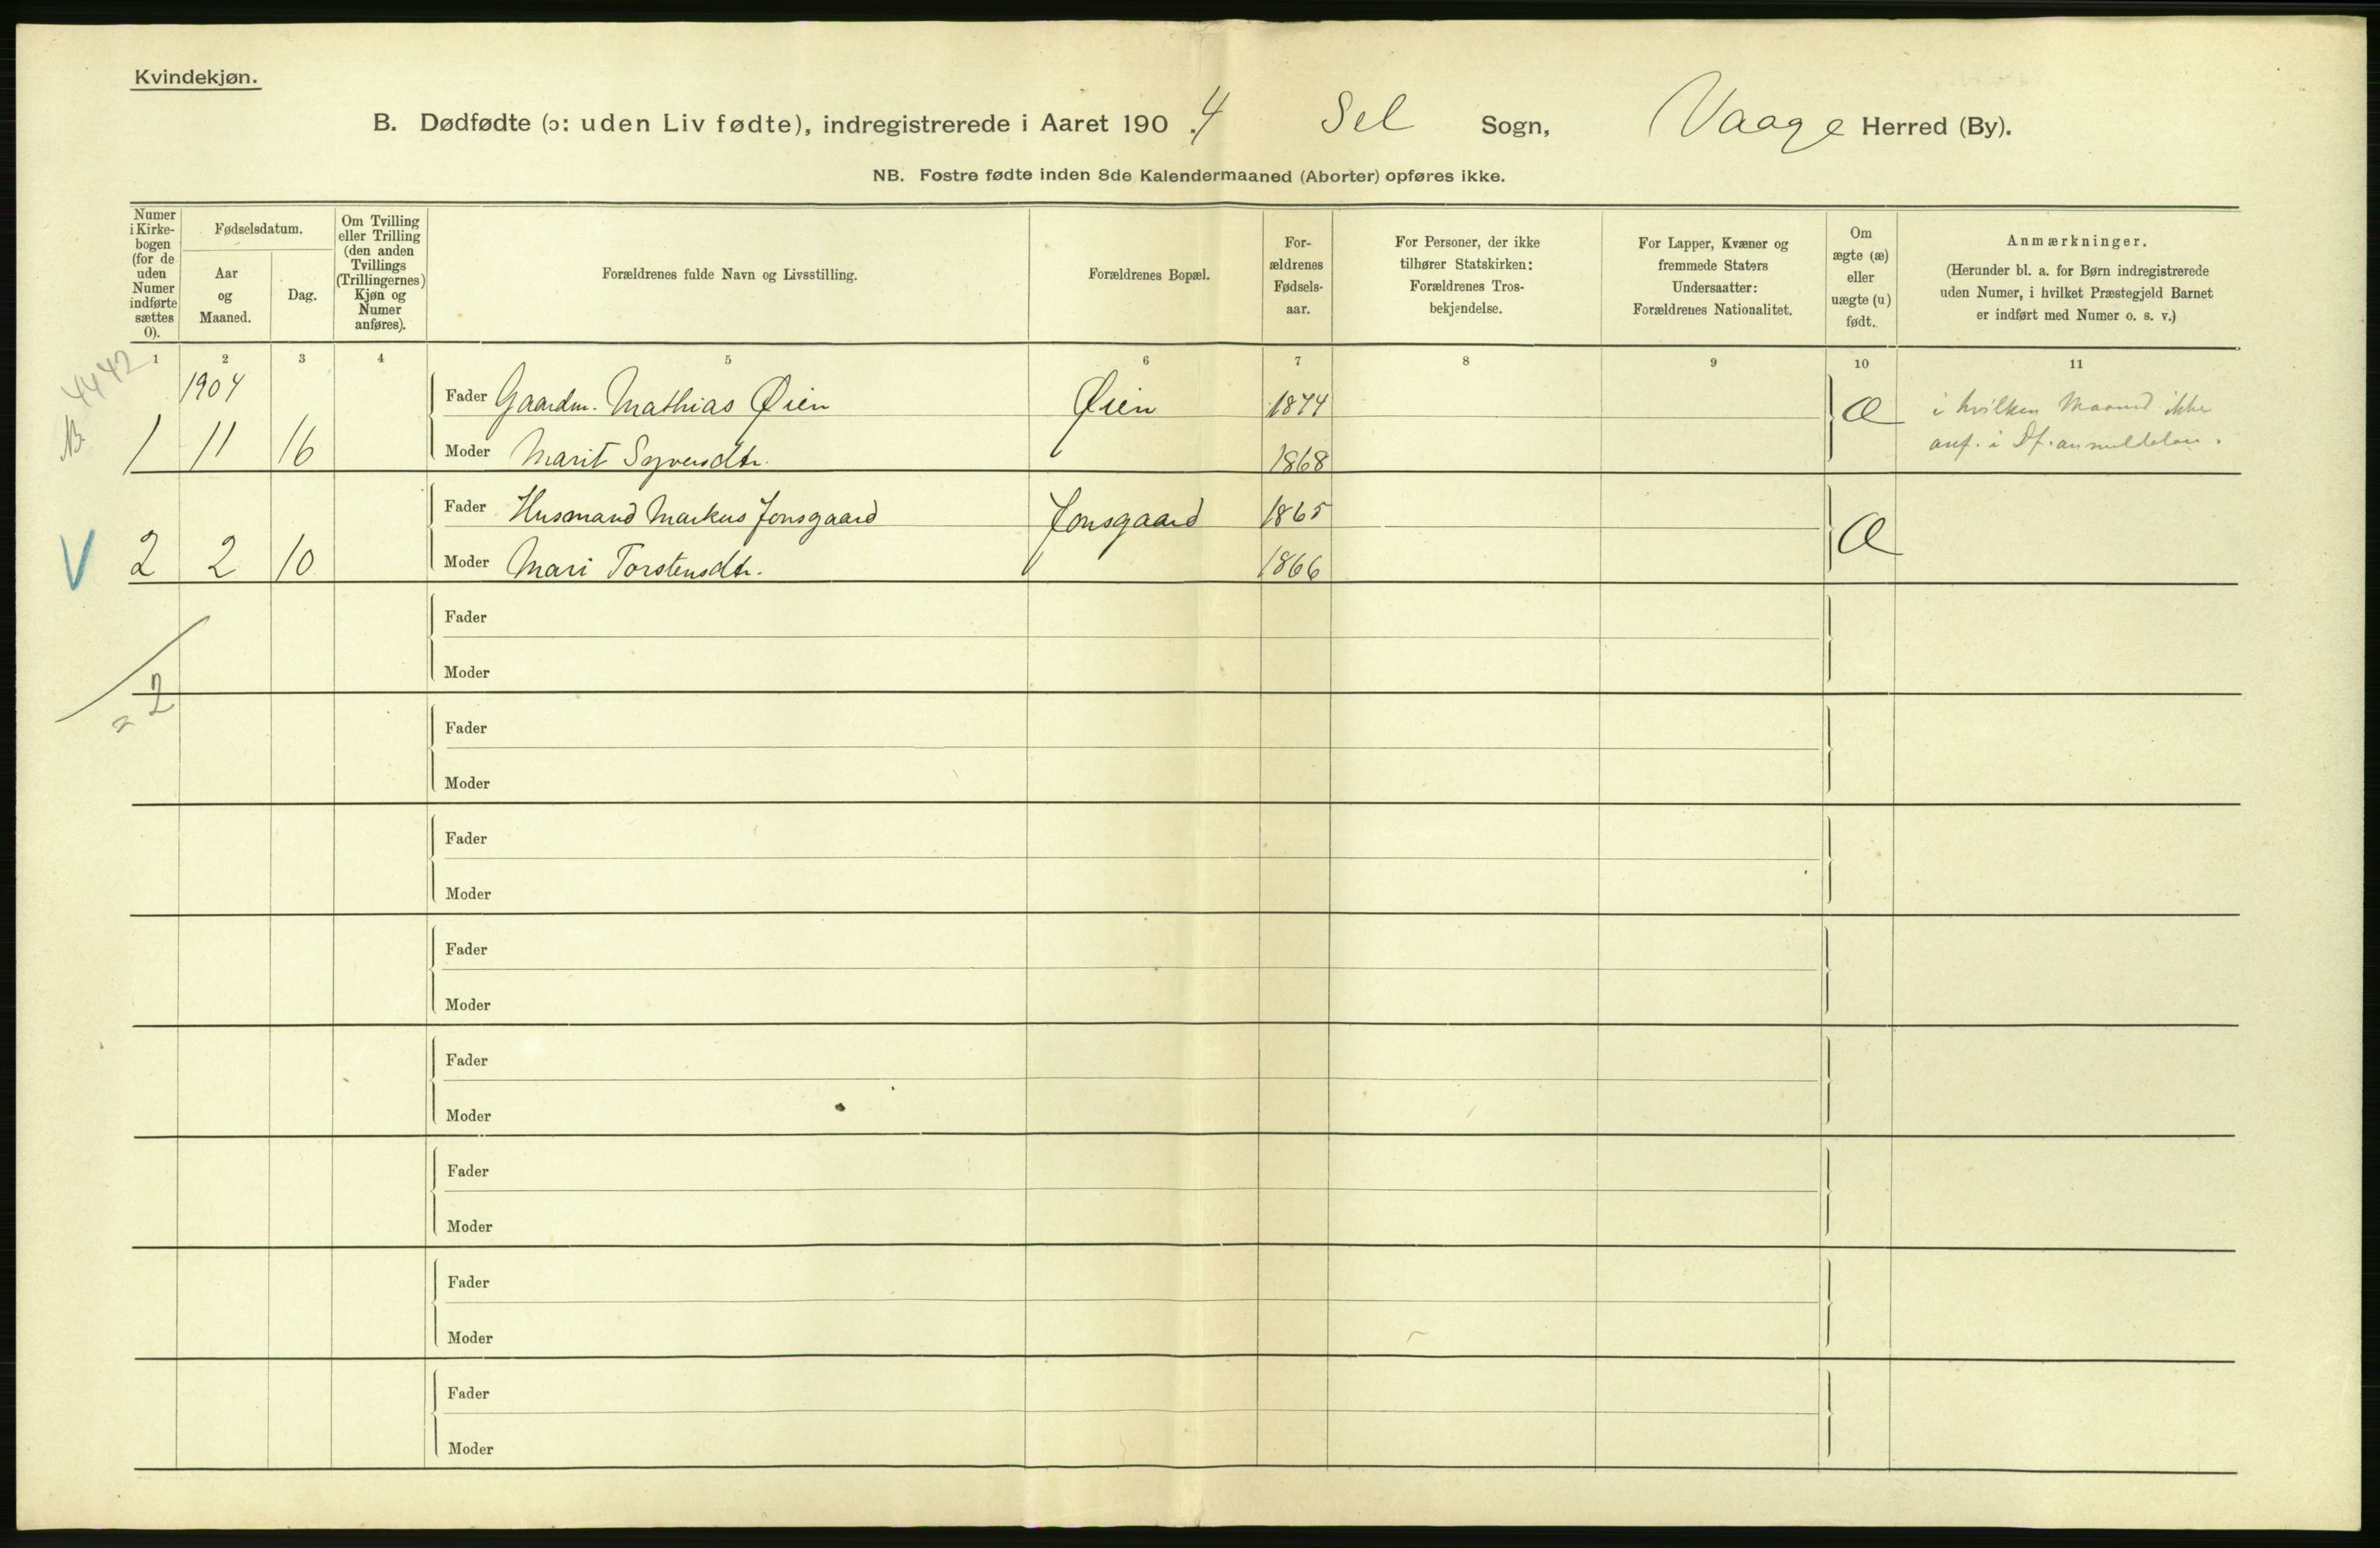 Kvindekjøn.
B. Dødfødte (ɔ: uden Liv fødte), indregistrerede i Aaret 190.4 Sel Sogn, Vaage Herred (By).
NB. Fostre fødte inden 8de Kalendermaaned (Aborter) opføres ikke.
Numer i Kirkebogen (for de uden Numer indførte sættes 0).
Fødselsdatum.
Aar og Maaned.
Dag.
Om Tvilling eller Trilling (den anden Tvillings (Trillingernes) Kjøn og Numer anføres).
Forældrenes fulde Navn og Livsstilling.
Forældrenes Bopæl.
For-
ældrenes
Fødsels-
aar.
For Personer, der ikke
tilhører Statskirken:
Forældrenes Tros-
bekjendelse.
For Lapper, Kvæner og
fremmede Staters
Undersaatter:
Forældrenes Nationalitet.
Om
ægte (æ)
eller
uægte (u)
født.
Anmærkninger.
(Herunder bl. a. for Børn indregistrerede
uden Numer, i hvilket Præstegjeld Barnet
er indført med Numer o. s. v.)
1 2 3 4 5 6 7 8 9 10 11
4442
1904
Fader Gaardm. Mathias Øien Øien 1874 Æ i hvilken Maaned ikke
NB. 1 11 16 Moder Marit Syversdtr. 1868 anf. i Df. anmeldelsen.
Fader Husmand Markus Jonsgaard Jonsgaard 1865 Æ
V 2 2 10 Moder Mari Torstensdtr. 1866
Fader
Moder
= 2
Fader
Moder
Fader
Moder
Fader
Moder
Fader
Moder
Fader
Moder
Fader
Moder
Fader
Moder